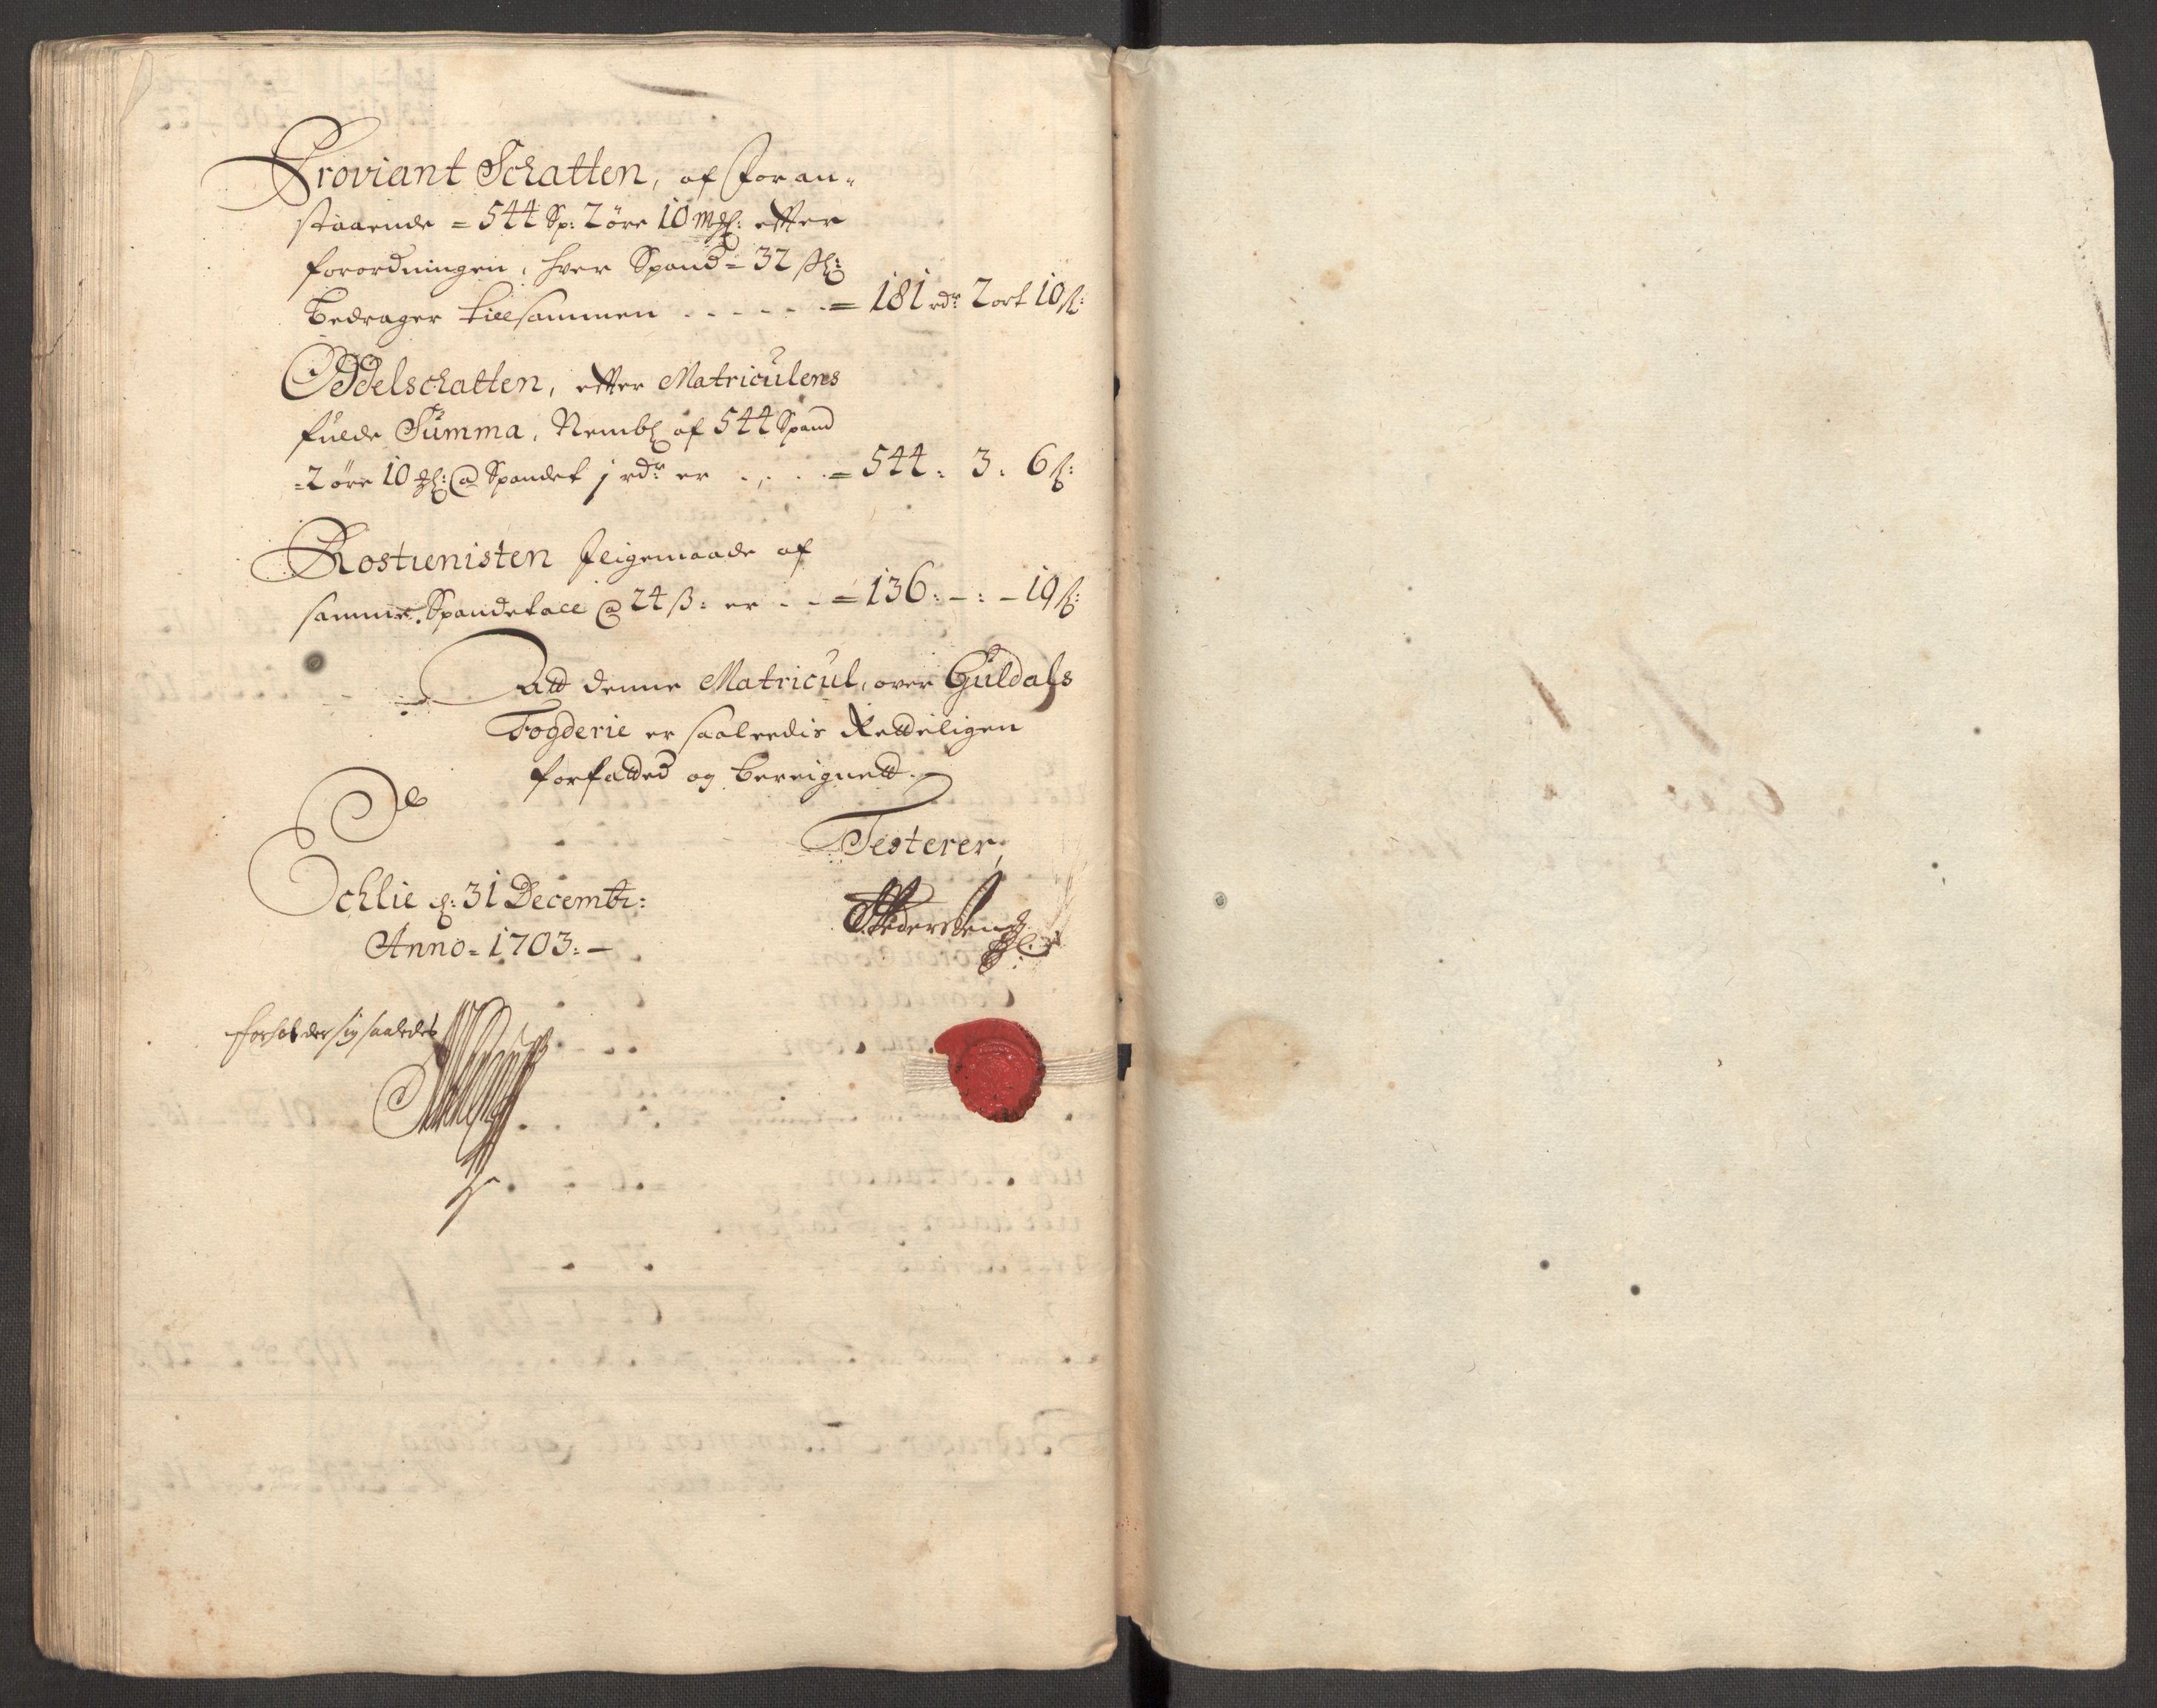 Proviant Schatten, af Foran-
staaende = 544 Sp: 2 öre 10 mgl: efter
forordningen, hver Spand = 32 sk:
bedrager tillsammen - - - - - = 181 rdr 2 ort 10 s:
Oddelschatten, efter Matriculens
fulde Summa, Nembl af 544 Spand
= 2 öre 10 gl: @ Spandet 1 rdr er - - - = 544: 3: 6 s:
Rostienisten Jligemaade af
samme Spandetall @ 24 ß: er - - = 136: - : - 19 s:
Att denne Matricul, over Guldals
Fogderie er saaledis Rettelligen
forfatted og bereignett.
Testerer,
Echlie d: 31 Decembr:
Anno = 1703: -
Pedersen
forholder sig saaledes